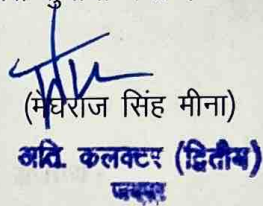 (मेघराज सिंह मीना)
अति. कलक्टर (द्वितीय)
जयपुर